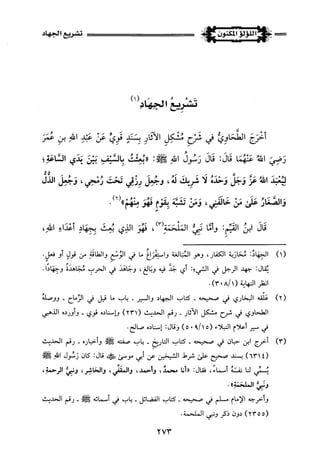 تشريع الجهاد
اللؤلؤ المكنون
تَشْرِيعُ الجِهَادِ(١)
أَخْرَجَ الطَّحَاوِيُّ فِي شَرْحِ مُشْكِلِ الآثَارِ بِسَنَدٍ قَوِيٍّ عَنْ عَبْدِ اللهِ بنِ عُمَرَ
رَضِيَ اللهُ عَنْهُمَا قَالَ: قَالَ رَسُولُ اللهِ ﷺ: «بُعِثْتُ بِالسَّيْفِ بَيْنَ يَدَيِ السَّاعَةِ؛
لِيُعْبَدَ اللهُ عَزَّ وَجَلَّ وَحْدَهُ لَا شَرِيكَ لَهُ، وَجُعِلَ رِزْقِي تَحْتَ رُمْحِي، وَجُعِلَ الذُّلُّ
وَالصَّغَارُ عَلَى مَنْ خَالَفَنِي، وَمَنْ تَشَبَّهَ بِقَوْمٍ فَهُوَ مِنْهُمْ»(٢).
قَالَ ابنُ القَيِّمِ: وَأَمَّا نَبِيُّ المَلْحَمَةِ(٣)، فَهُوَ الذِي بُعِثَ بِجِهَادِ أَعْدَاءِ اللهِ،
(١) الجِهَادُ: مُحَارَبَة الكفار، وهو المُبَالغة واستِفْرَاغُ ما في الوُسْعِ والطاقةِ من قولٍ أو فعلٍ.
يُقال: جهد الرجل في الشيء: أي جَدَّ فيه وبالَغ، وجَاهَدَ في الحرب مُجَاهَدَةً وجهادًا.
انظر النهاية (٣٠٨/١).
(٢) علَّقه البخاري في صحيحه - كتاب الجهاد والسير - باب ما قيل في الرِّماح - ووصلَهُ
الطحاوي في شرح مشكل الآثار - رقم الحديث (٢٣١) وإسناده قوي - وأورده الذهبي
في سير أعلام النبلاء (٥٠٩/١٥) وقال: إسناده صالح.
(٣) أخرج ابن حبان في صحيحه - كتاب التاريخ - باب صفته ﷺ وأخباره - رقم الحديث
(٦٣١٤) بسند صحيح على شرط الشيخين عن أبي موسى ﷺ قال: كان رَسُول اللهِ ﷺ
يُسمِّي لنا نفسَهُ أسماءً، فقال: «أنا محمدٌ، وأحمد، والمقَفِّي، والحَاشِر، ونبيُّ الرحمة،
ونَبِيُّ الملحمة».
وأخرجه الإمام مسلم في صحيحه - كتاب الفضائل - باب في أسمائه ﷺ - رقم الحديث
(٢٣٥٥) دون ذكر ونبي الملحمة.
٢٧٣